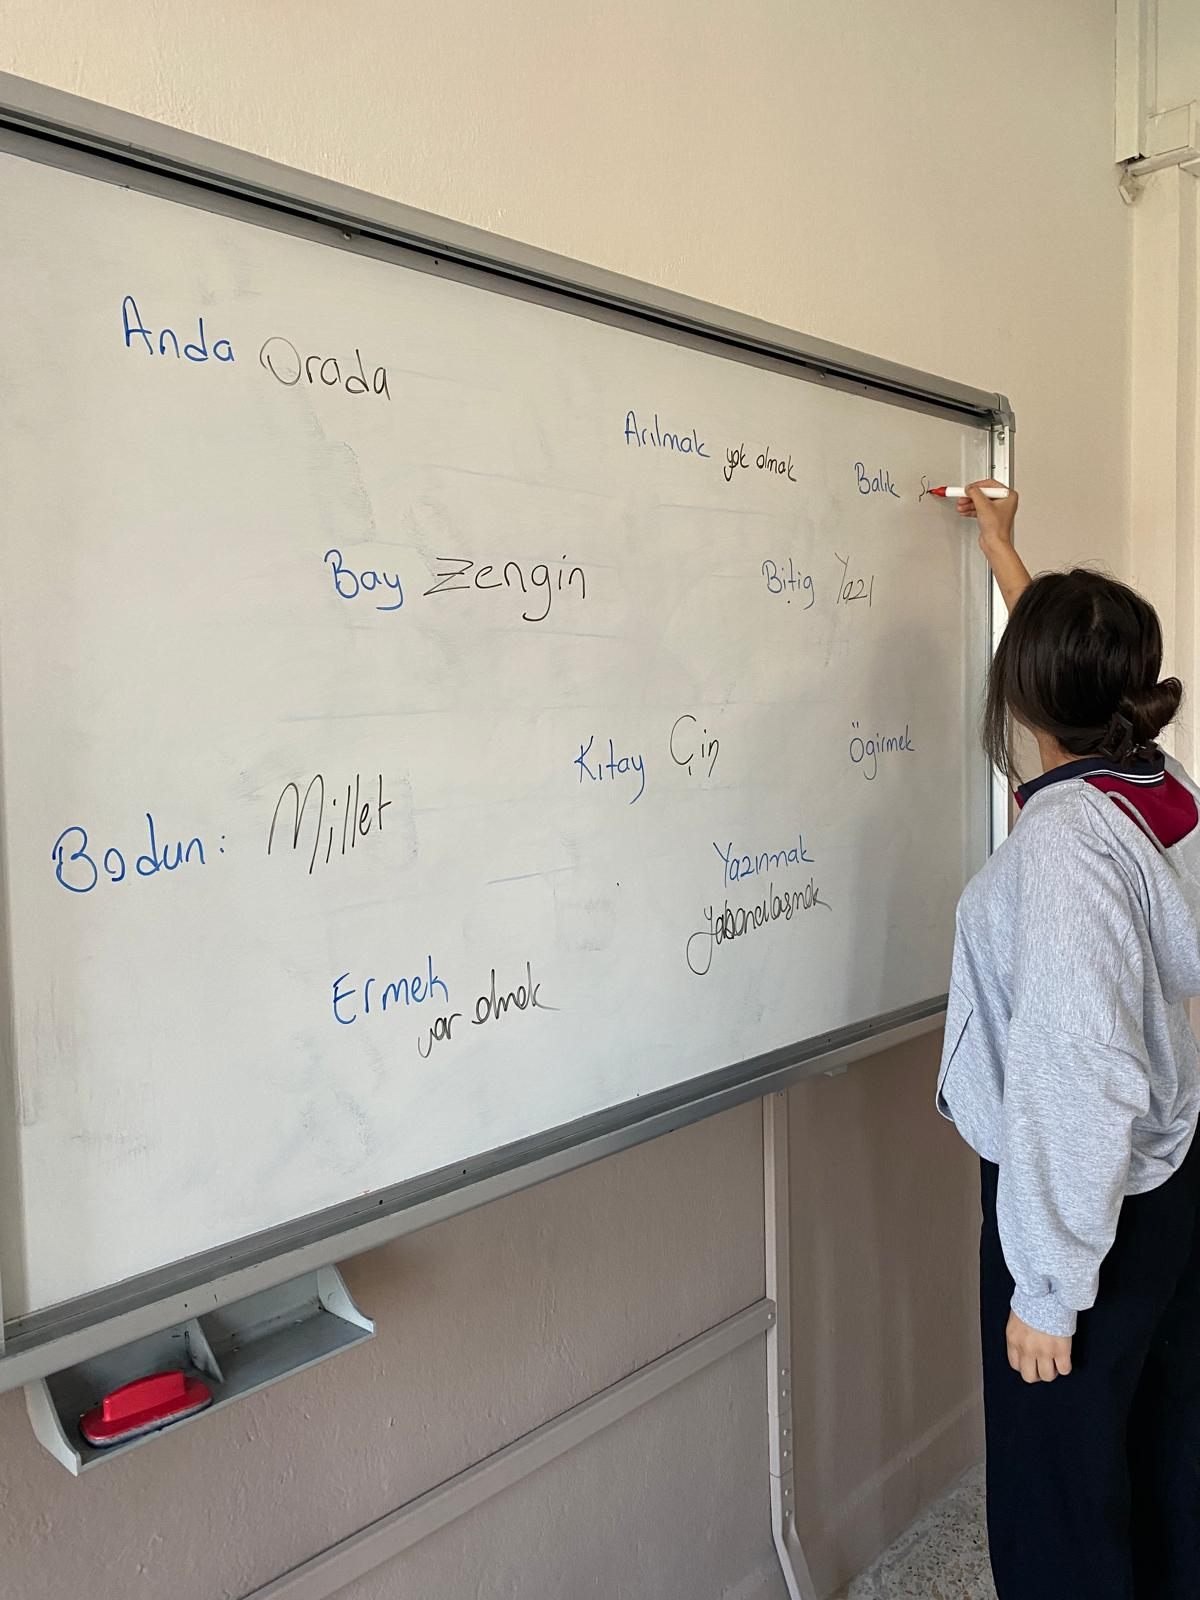 Anda Orada
Arılmak yok olmak
Balık
Bay Zengin
Bitig Yazı
Kıtay Çin
Ögirmek
Bodun: Millet
Yazınmak
yabancılaşmak
Ermek
var olmak